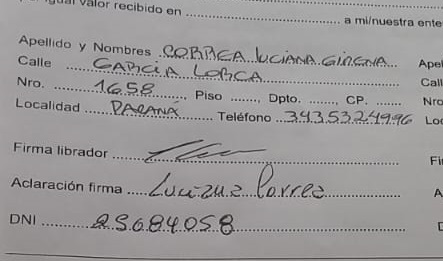 por igual valor recibido en ........................ a mi/nuestra ente
Apellido y Nombres CORREA LUCIANA GIMENA Apel
Calle GARCIA LORCA Call
Nro. 1658 Piso ......., Dpto. ......., CP. ....... Nro
Localidad PARANÁ Teléfono 3435324996 Loc
Firma librador ........................ Fi
Aclaración firma Luciana Correa A
DNI 29684058